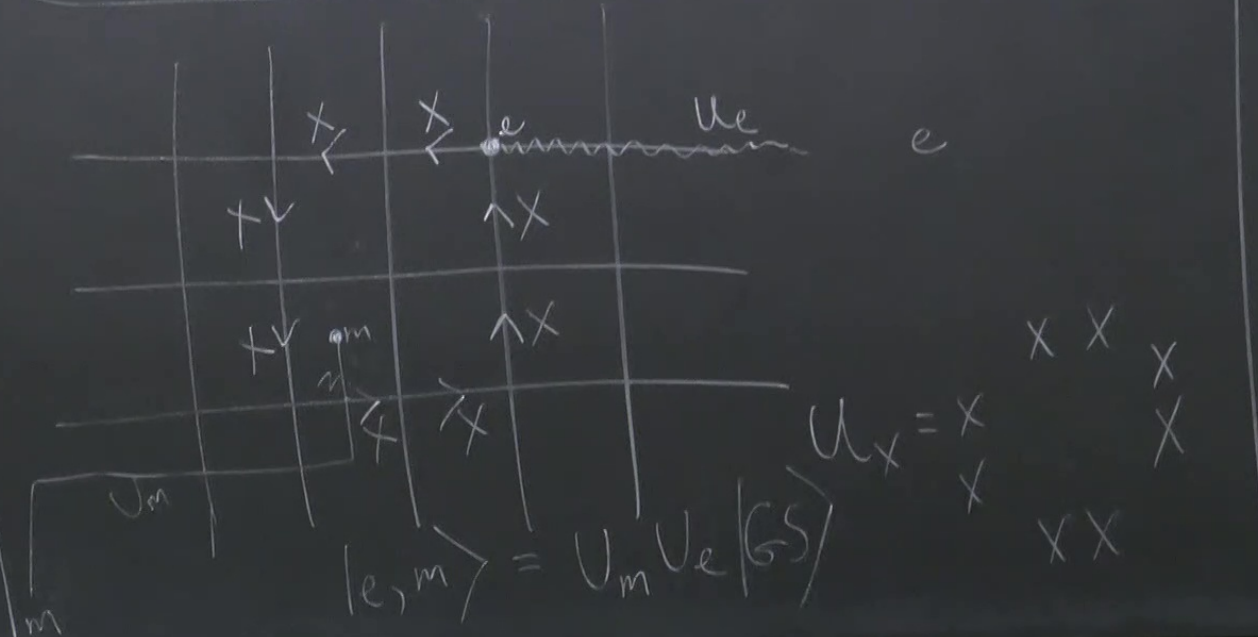 X X e Ue e
X X
X m X
X X X
X X
Um
Ux = X X X X X X X X
|e,m⟩ = Um Ue |GS⟩
m